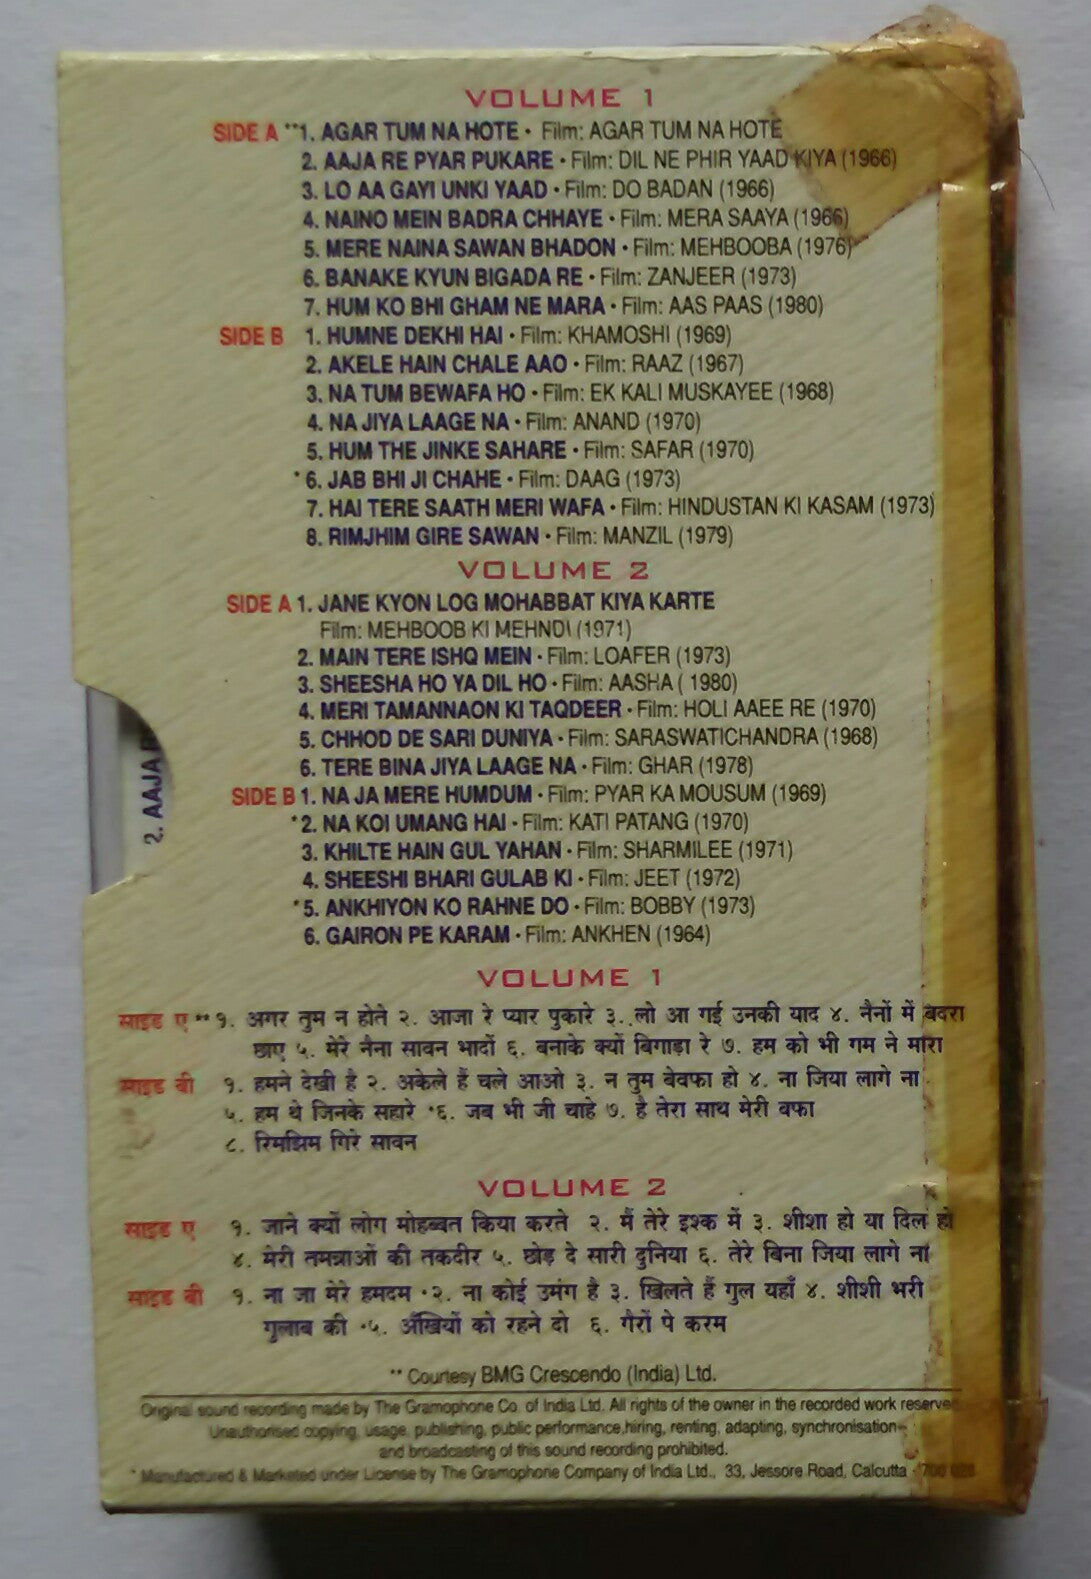 VOLUME 1
SIDE A **1. AGAR TUM NA HOTE • Film: AGAR TUM NA HOTE
2. AAJA RE PYAR PUKARE • Film: DIL NE PHIR YAAD KIYA (1966)
3. LO AA GAYI UNKI YAAD • Film: DO BADAN (1966)
4. NAINO MEIN BADRA CHHAYE • Film: MERA SAAYA (1966)
5. MERE NAINA SAWAN BHADON • Film: MEHBOOBA (1976)
6. BANAKE KYUN BIGADA RE • Film: ZANJEER (1973)
7. HUM KO BHI GHAM NE MARA • Film: AAS PAAS (1980)
SIDE B 1. HUMNE DEKHI HAI • Film: KHAMOSHI (1969)
2. AKELE HAIN CHALE AAO • Film: RAAZ (1967)
3. NA TUM BEWAFA HO • Film: EK KALI MUSKAYEE (1968)
4. NA JIYA LAAGE NA • Film: ANAND (1970)
5. HUM THE JINKE SAHARE • Film: SAFAR (1970)
*6. JAB BHI JI CHAHE • Film: DAAG (1973)
7. HAI TERE SAATH MERI WAFA • Film: HINDUSTAN KI KASAM (1973)
8. RIMJHIM GIRE SAWAN • Film: MANZIL (1979)
VOLUME 2
SIDE A 1. JANE KYON LOG MOHABBAT KIYA KARTE
Film: MEHBOOB KI MEHNDI (1971)
2. MAIN TERE ISHQ MEIN • Film: LOAFER (1973)
3. SHEESHA HO YA DIL HO • Film: AASHA ( 1980)
4. MERI TAMANNAON KI TAQDEER • Film: HOLI AAEE RE (1970)
5. CHHOD DE SARI DUNIYA • Film: SARASWATICHANDRA (1968)
6. TERE BINA JIYA LAAGE NA • Film: GHAR (1978)
SIDE B 1. NA JA MERE HUMDUM • Film: PYAR KA MOUSUM (1969)
*2. NA KOI UMANG HAI • Film: KATI PATANG (1970)
3. KHILTE HAIN GUL YAHAN • Film: SHARMILEE (1971)
4. SHEESHI BHARI GULAB KI • Film: JEET (1972)
*5. ANKHIYON KO RAHNE DO • Film: BOBBY (1973)
6. GAIRON PE KARAM • Film: ANKHEN (1964)
2. AAJA
VOLUME 1
साइड ए **१. अगर तुम न होते २. आजा रे प्यार पुकारे ३. लो आ गई उनकी याद ४. नैनों में बदरा
छाए ५. मेरे नैना सावन भादों ६. बनाके क्यों बिगाड़ा रे ७. हम को भी गम ने मारा
साइड बी १. हमने देखी है २. अकेले हैं चले आओ ३. न तुम बेवफा हो ४. ना जिया लागे ना
५. हम थे जिनके सहारे *६. जब भी जी चाहे ७. है तेरा साथ मेरी वफा
८. रिमझिम गिरे सावन
VOLUME 2
साइड ए १. जाने क्यों लोग मोहब्बत किया करते २. मैं तेरे इश्क में ३. शीशा हो या दिल हो
४. मेरी तमन्नाओं की तकदीर ५. छोड़ दे सारी दुनिया ६. तेरे बिना जिया लागे ना
साइड बी १. ना जा मेरे हमदम *२. ना कोई उमंग है ३. खिलते हैं गुल यहाँ ४. शीशी भरी
गुलाब की *५. अँखियों को रहने दो ६. गैरों पे करम
** Courtesy BMG Crescendo (India) Ltd.
Original sound recording made by The Gramophone Co. of India Ltd. All rights of the owner in the recorded work reserve
Unauthorised copying, usage, publishing, public performance,hiring, renting, adapting, synchronisation
and broadcasting of this sound recording prohibited.
* Manufactured & Marketed under License by The Gramophone Company of India Ltd., 33, Jessore Road, Calcutta - 700 028